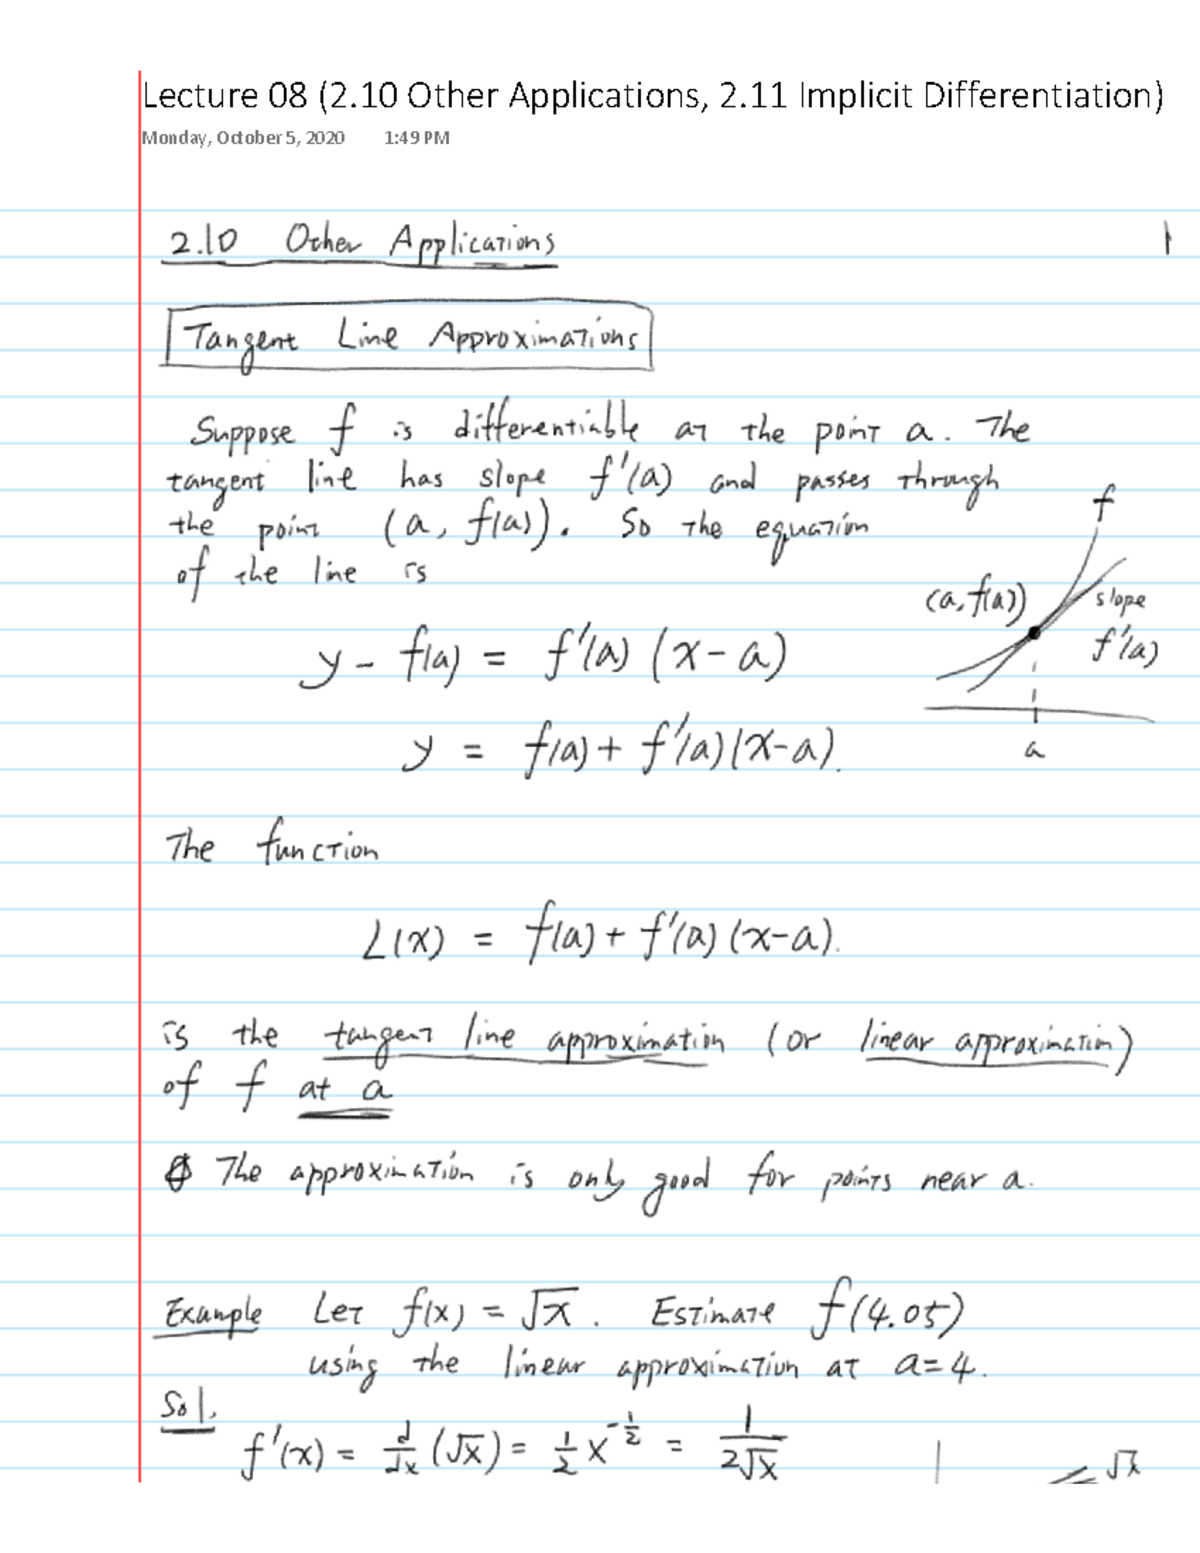 Lecture 08 (2.10 Other Applications, 2.11 Implicit Differentiation)
Monday, October 5, 2020 1:49 PM
2.10 Other Applications 1
Tangent Line Approximations
Suppose f is differentiable at the point a. The
tangent line has slope f'(a) and passes through
the point (a, f(a)). So the equation
of the line is
f
(a, f(a))
slope
f'(a)
a
y - f(a) = f'(a) (x - a)
y = f(a) + f'(a)(x-a).
The function
L(x) = f(a) + f'(a) (x-a).
is the tangent line approximation (or linear approximation)
of f at a
The approximation is only good for points near a.
Example Let f(x) = √x. Estimate f(4.05)
using the linear approximation at a=4.
Sol.
f'(x) = d/dx (√x) = 1/2 x^(-1/2) = 1/(2√x)
√x